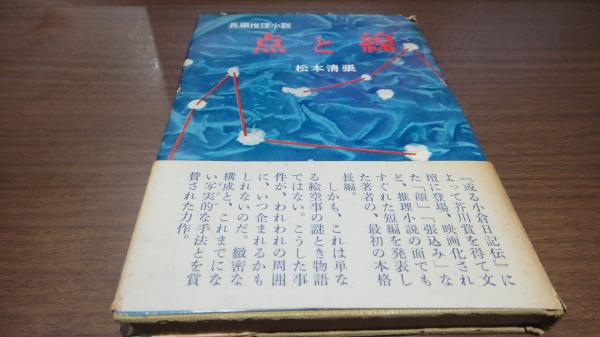 長篇推理小説
点と線
松本清張
『或る小倉日記伝』に
よって芥川賞を得て文
壇に登場、映画化され
た「顔」「張込み」な
ど、推理小説の面でも
すぐれた短編を発表し
た著者の、最初の本格
長編。
しかも、これは単な
る絵空事の謎とき物語
ではない。こうした事
件が、われわれの周囲
に、いつ企まれるかも
しれないのだ。緻密な
構成と、これまでにな
い写実的な手法とを賞
賛された力作。